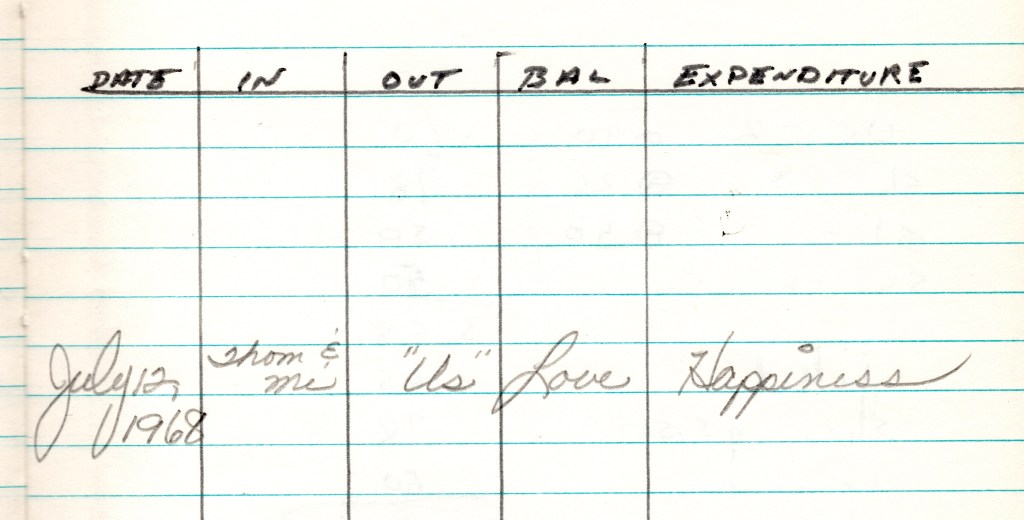 DATE IN OUT BAL EXPENDITURE
July 12, Thom & "Us" Love Happiness
1968 Me